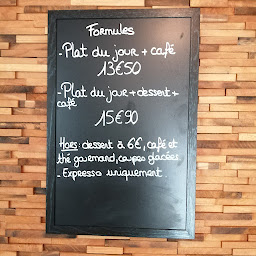 Formules
- Plat du jour + café
13€50
- Plat du jour + dessert +
café
15€90
Hors : dessert à 6€, café et
thé gourmand, coupes glacées
- Expresso uniquement